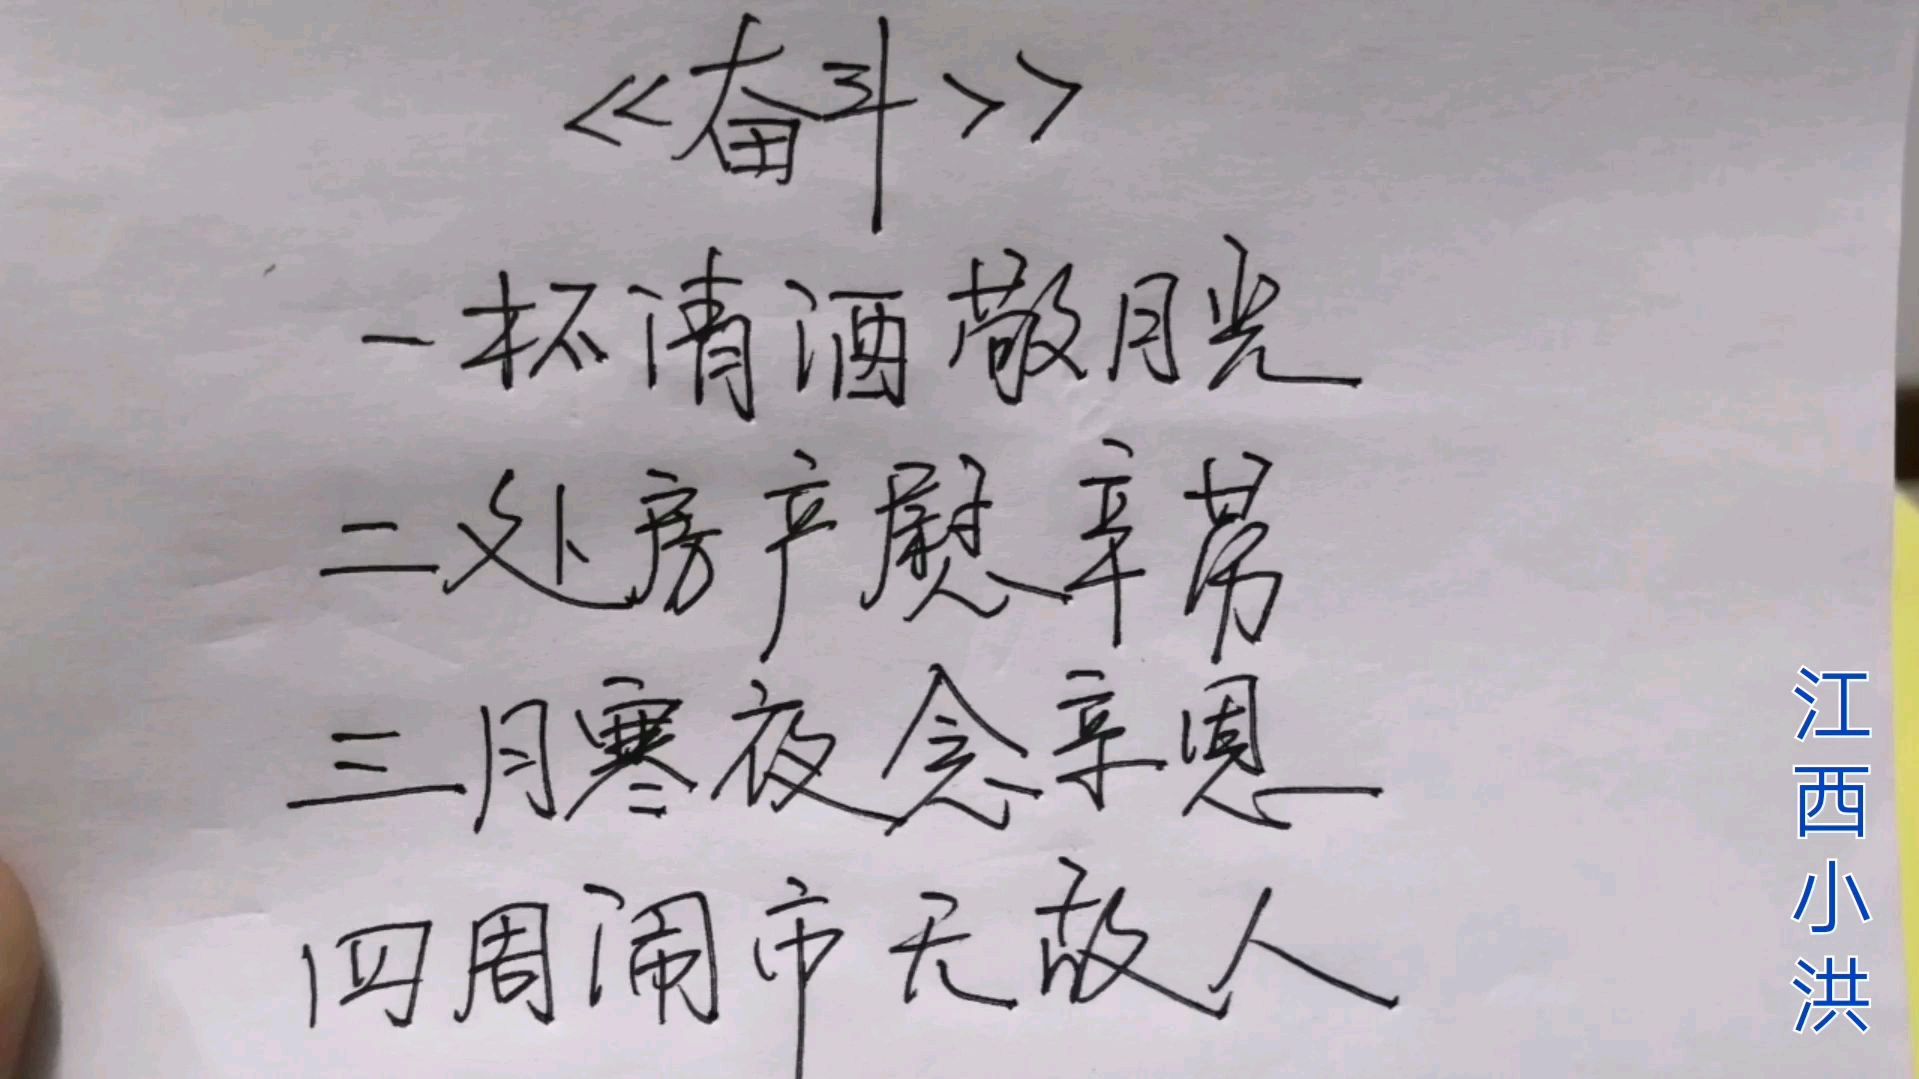 <<奋斗>>
一杯清酒敬月光
二处房产慰辛劳
三月寒夜念亲恩
四周闹市无故人
江西小洪